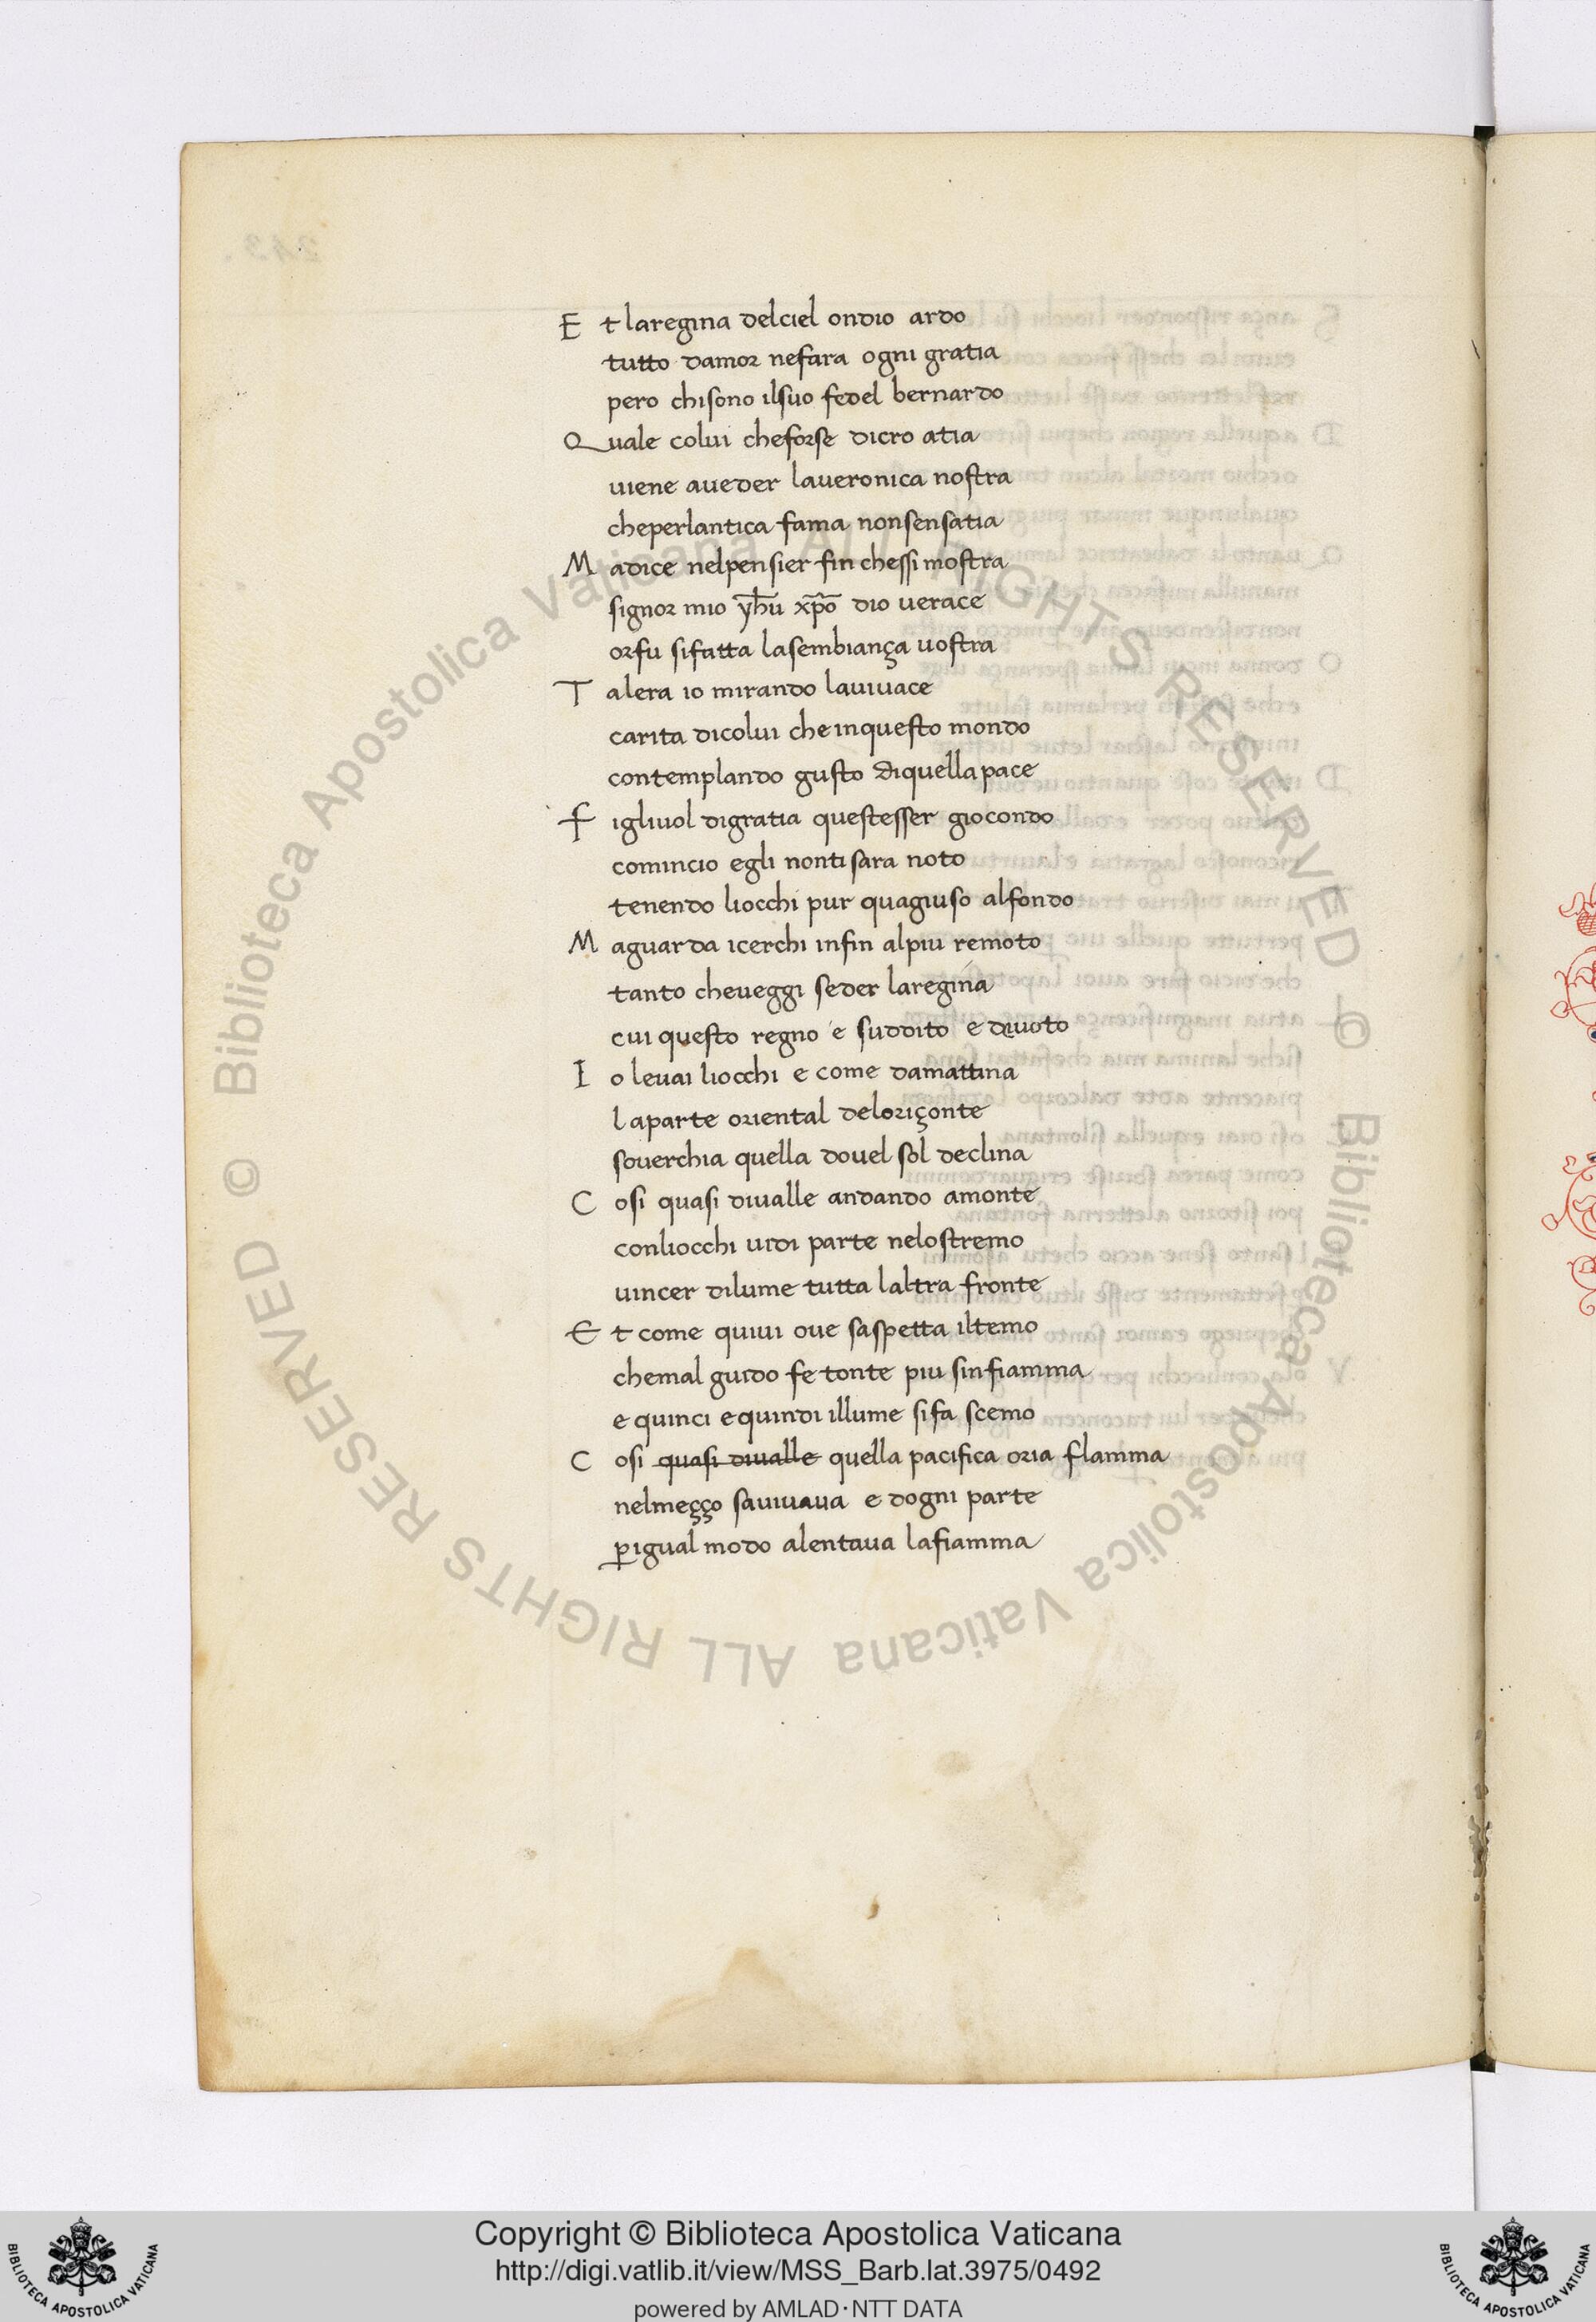 E t laregina delciel ondio ardo
tutto damor nefara ogni gratia
pero chisono ilsuo fedel bernardo
Quale colui cheforse dicro atia
uiene aueder laueronica nostra
cheperlantica fama nonsensatia
M adice nelpensier fin chessi mostra
signor mio yhū xp̄o dio uerace
orfu sifatta lasembiança uostra
T alera io mirando lauiuace
carita dicolui cheinquesto mondo
contemplando gusto diquella pace
F igliuol digratia questesser giocondo
comincio egli nonti sara noto
tenendo liocchi pur quagiuso alfondo
M aguarda icerchi infin alpiu remoto
tanto cheueggi seder laregina
cui questo regno e suddito e diuoto
I o leuai liocchi e come damattina
laparte oriental deloriçonte
souerchia quella douel sol declina
C osi quasi diualle andando amonte
conliocchi uidi parte nelostremo
uincer dilume tutta laltra fronte
E t come quiui oue saspetta iltemo
chemal guido fe tonte piu sinfiamma
e quinci equindi illume sifa scemo
C osi quasi diualle quella pacifica oria flamma
nelmeçço sauiuaua e dogni parte
ꝑigual modo alentaua lafiamma
© Biblioteca Apostolica Vaticana ALL RIGHTS RESERVED
© Biblioteca Apostolica Vaticana ALL RIGHTS RESERVED
Copyright © Biblioteca Apostolica Vaticana
http://digi.vatlib.it/view/MSS_Barb.lat.3975/0492
powered by AMLAD·NTT DATA
BIBLIOTECA APOSTOLICA VATICANA
BIBLIOTECA APOSTOLICA VATICANA